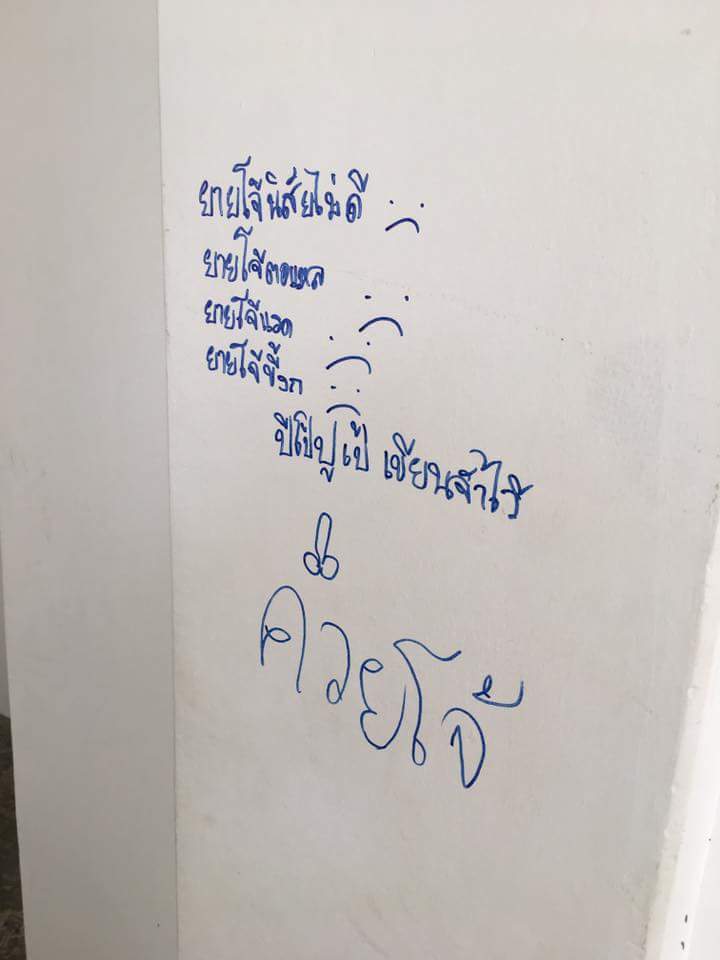 ยายโจ้นิสัยไม่ดี
ยายโจ้ตอแหล
ยายโจ้แรด
ยายโจ้ขี้งก
ปีโป้ปูเป้ เขียนจ้าไว้
ควยโจ้